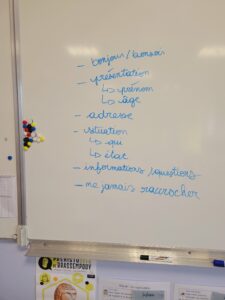 - bonjour / bonsoir
- présentation
↳ prénom
↳ âge
- adresse
- situation
↳ qui
↳ état
- informations / questions
- ne jamais raccrocher
BRASSEMPOUY